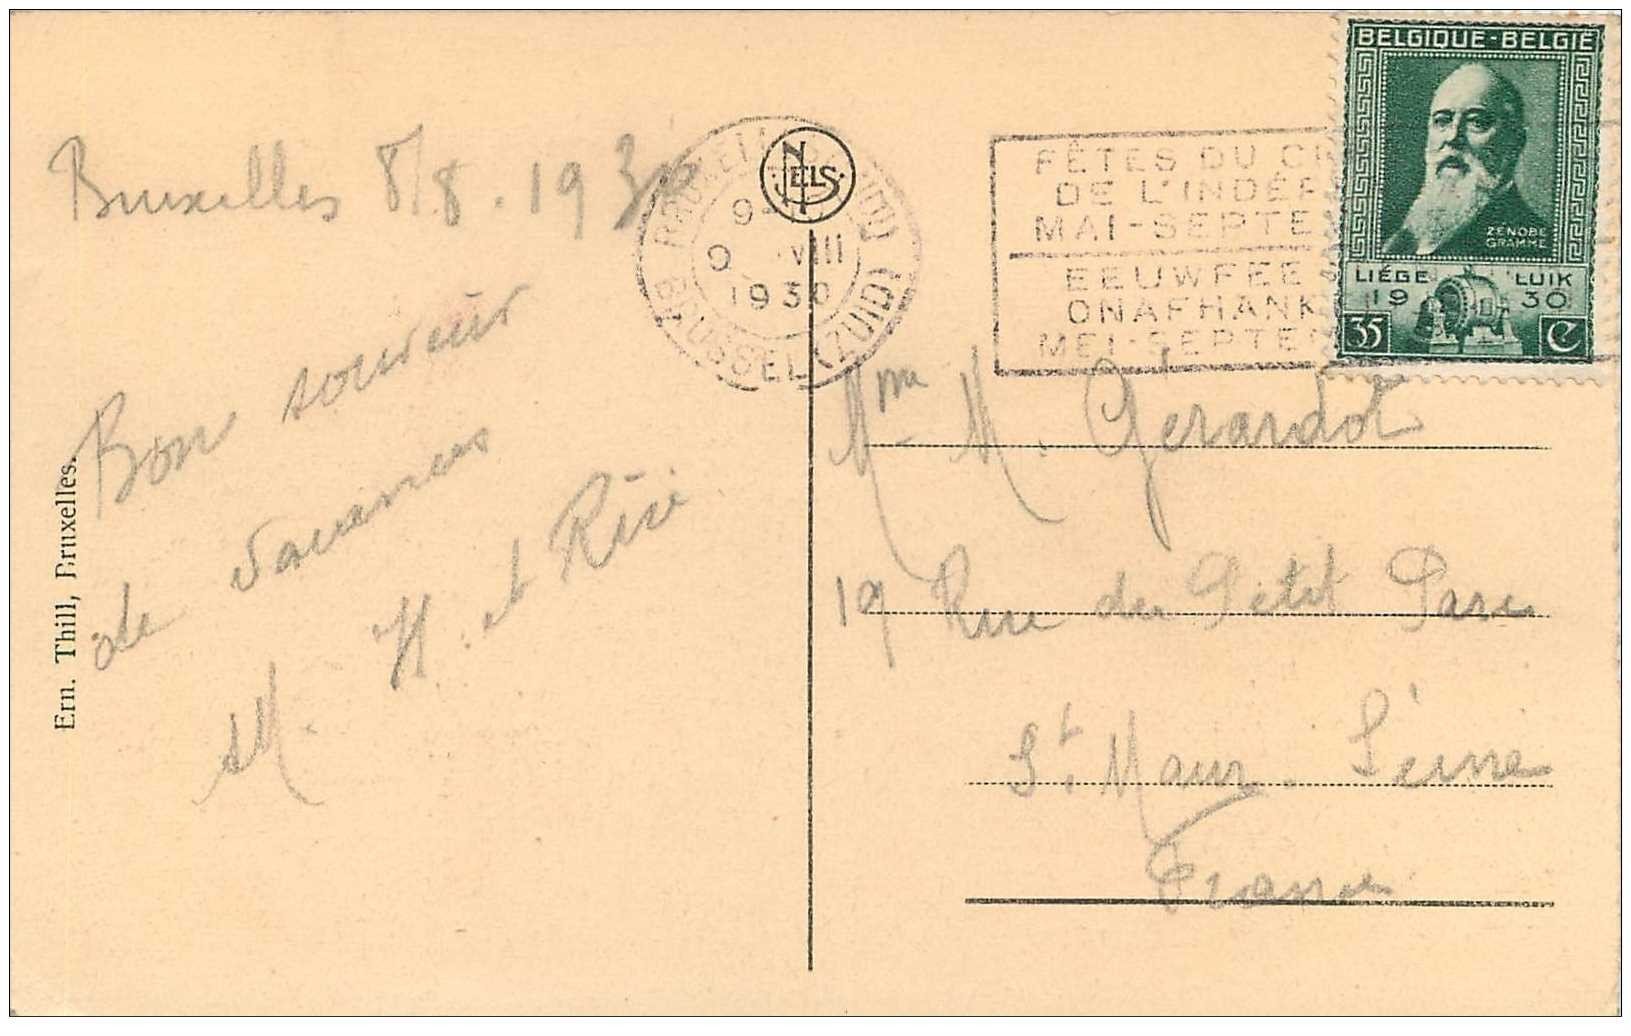 Bruxelles 8/8. 1930
Bon souvenir
de vacances
M. H. et Rési
Ern. Thill, Bruxelles.
NELS
BRUXELLES (MIDI)
9-
9 VIII
1930
BRUSSEL (ZUID)
FÊTES DU C
DE L'INDÉP
MAI-SEPTE
EEUWFEE
ONAFHANK
MEI-SEPTE
BELGIQUE-BELGIË
ZENOBE
GRAMME
LIÉGE LUIK
19 30
35 C
Mme M. Gérardot
19 Rue du Petit Parc
St. Maur. Seine
France